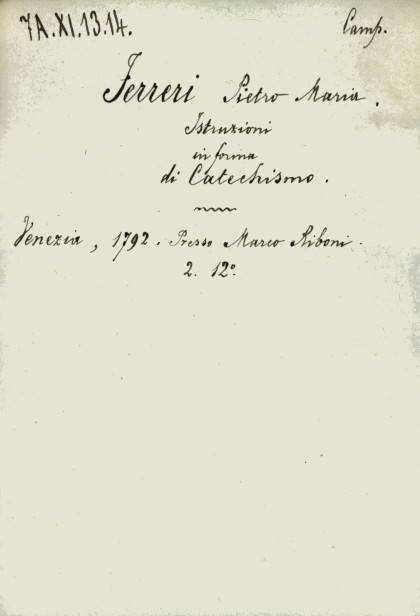 7A.XI.13.14.
Camp.
Ferreri Pietro Maria.
Istruzioni
in forma
di Catechismo.
Venezia, 1792. Presso Marco Riboni.
2. 12º.